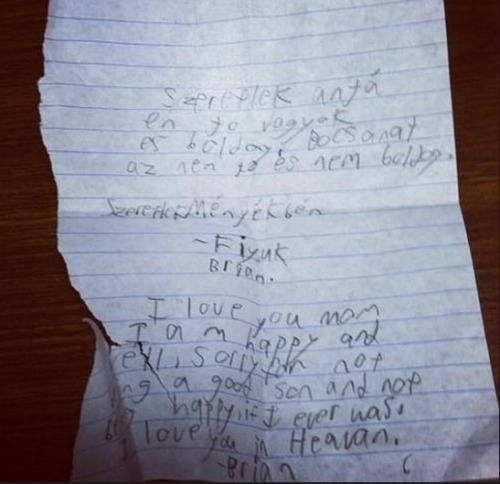 Szeretlek anyá
en jo vagyok
és boldog. Bocsanat
az nem jo és nem boldog.
Szeretlek Menyékbén
- Fiyuk
Brian.
I love you mom
I am happy and
ell, sorry for not
ing a good son and not
happy, if I ever was.
love you in Heavan.
- Brian